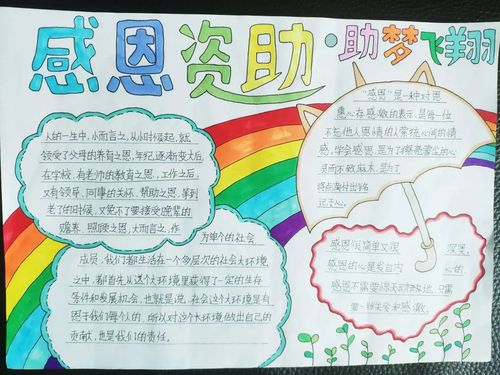 感恩资助·助梦飞翔
人的一生中,小而言之,从小时候起,就
领受了父母的养育之恩,年纪逐渐变大后,
在学校,有老师的教育之恩,工作之后,
又有领导、同事的关怀、帮助之恩,等到
老了的时候,又免不了要接受晚辈的
赡养、照顾之恩,大而言之,作
为单个的社会
成员,我们都生活在一个多层次的社会大环境
之中,都首先从这个大环境里获得了一定的生存
条件和发展机会,也就是说,社会这个大环境是有
恩于我们每个人的,所以对这个大环境做出自己的
贡献,也是我们的责任。
“感恩”是一种对恩
惠心存感激的表示,是每一位
不忘他人恩情的人萦绕心间的情
感,学会感恩,是为了擦亮蒙尘的心
灵而不致麻木,是为了
将点滴付出铭
记于心。
感恩很简单又很 深奥,
感恩的心是发自内 心的,
感恩不需要惊天动地,只需
要一些关爱和感激。